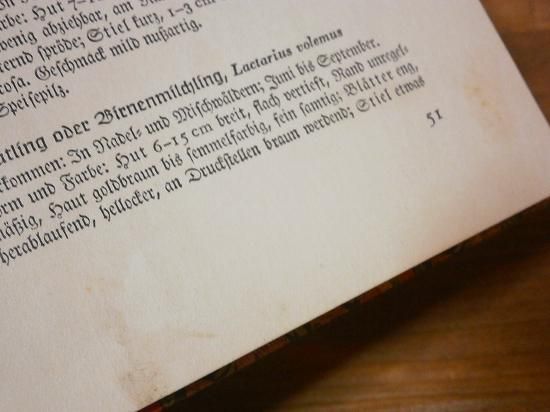 be: Hut 7–1
wenig abziehbar, am
ternd spröde; Stiel kurz, 1–3 cm
rosa. Geschmack mild nußartig.
Speisepilz.
ätling oder Birnenmilchling, Lactarius volemus
rkommen: In Nadel- und Mischwäldern; Juni bis September.
orm und Farbe: Hut 6–15 cm breit, flach vertieft, Rand unregel-
mäßig, Haut goldbraun bis semmelfarbig, fein samtig; Blätter eng,
herablaufend, hellocker, an Druckstellen braun werdend; Stiel etwas
51